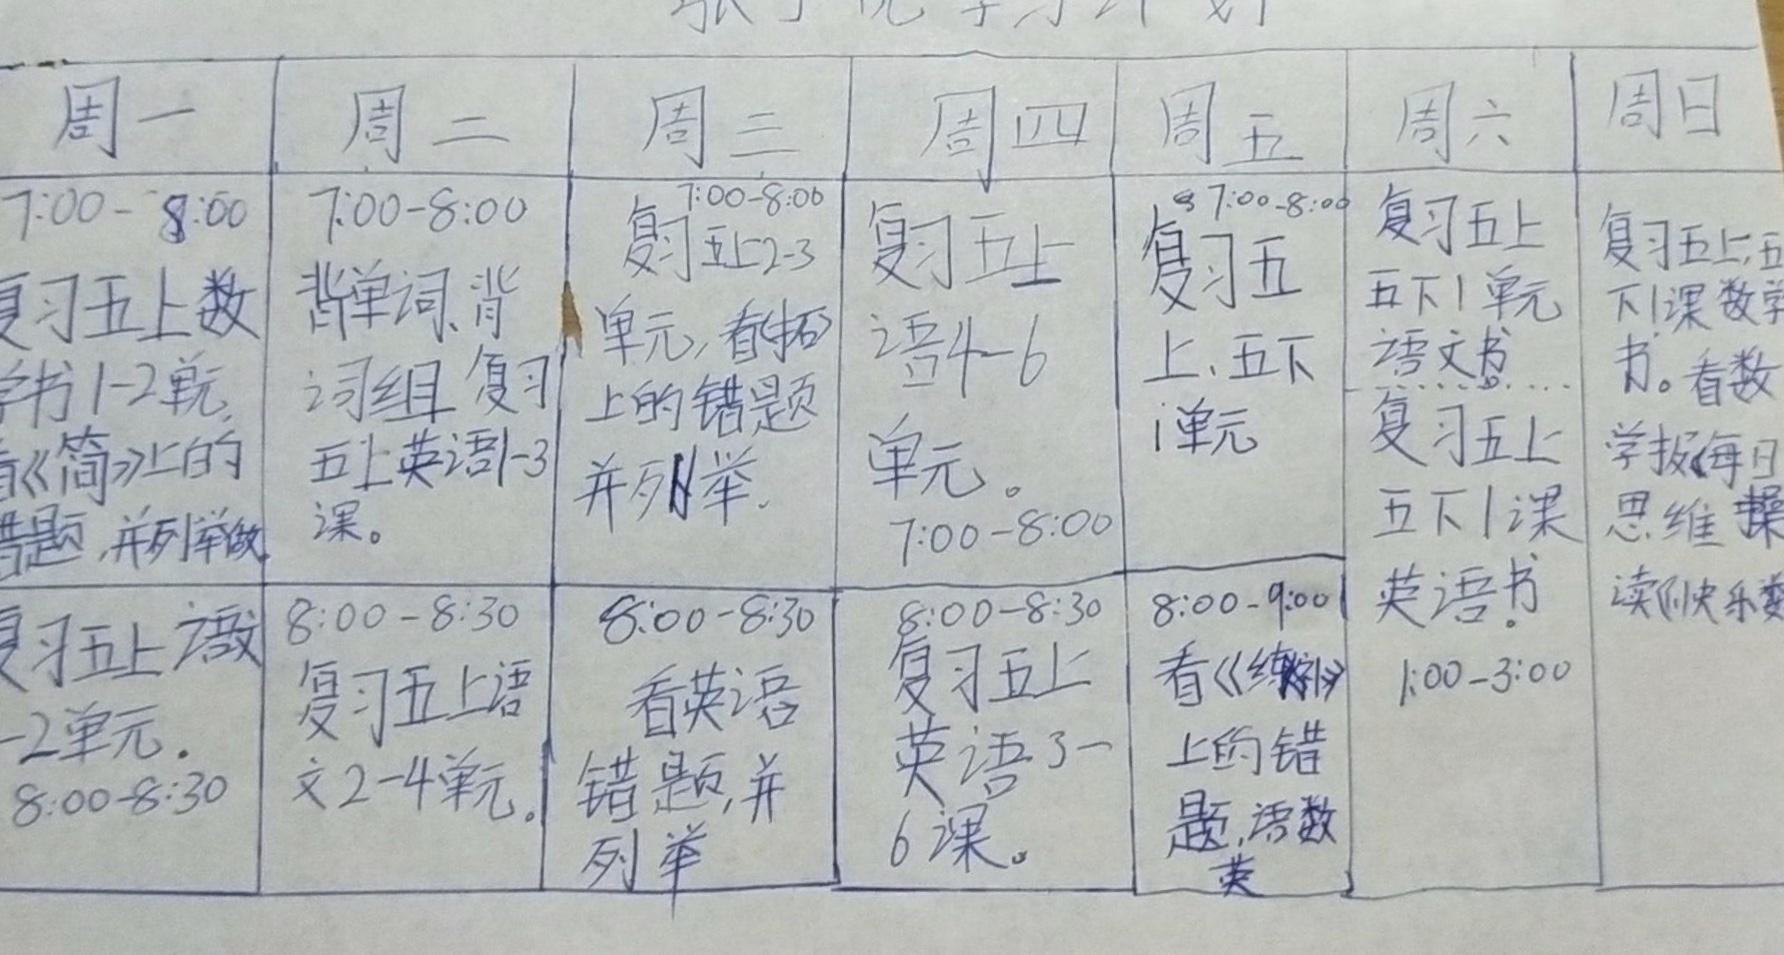 学习计划
周一 周二 周三 周四 周五 周六 周日
7:00-8:00
复习五上数
学书1-2单元,
看《简》上的
错题,并列举做
7:00-8:00
背单词、背
词组 复习
五上英语1-3
课。
7:00-8:00
复习五上2-3
单元,看《拓》
上的错题
并列举.
复习五上
语4-6
单元。
7:00-8:00
7:00-8:00
复习五
上、五下
1单元
复习五上
五下1单元
语文书。
复习五上
五下1课
英语书.
1:00-3:00
复习五上,五
下1课数学
书。看数
学报《每日
思维 操
读《快乐数
复习五上语文
-2单元.
8:00-8:30
8:00-8:30
复习五上语
文2-4单元.
8:00-8:30
看英语
错题,并
列举
8:00-8:30
复习五上
英语3-
6课。
8:00-9:00
看《练
上的错
题,语数
英